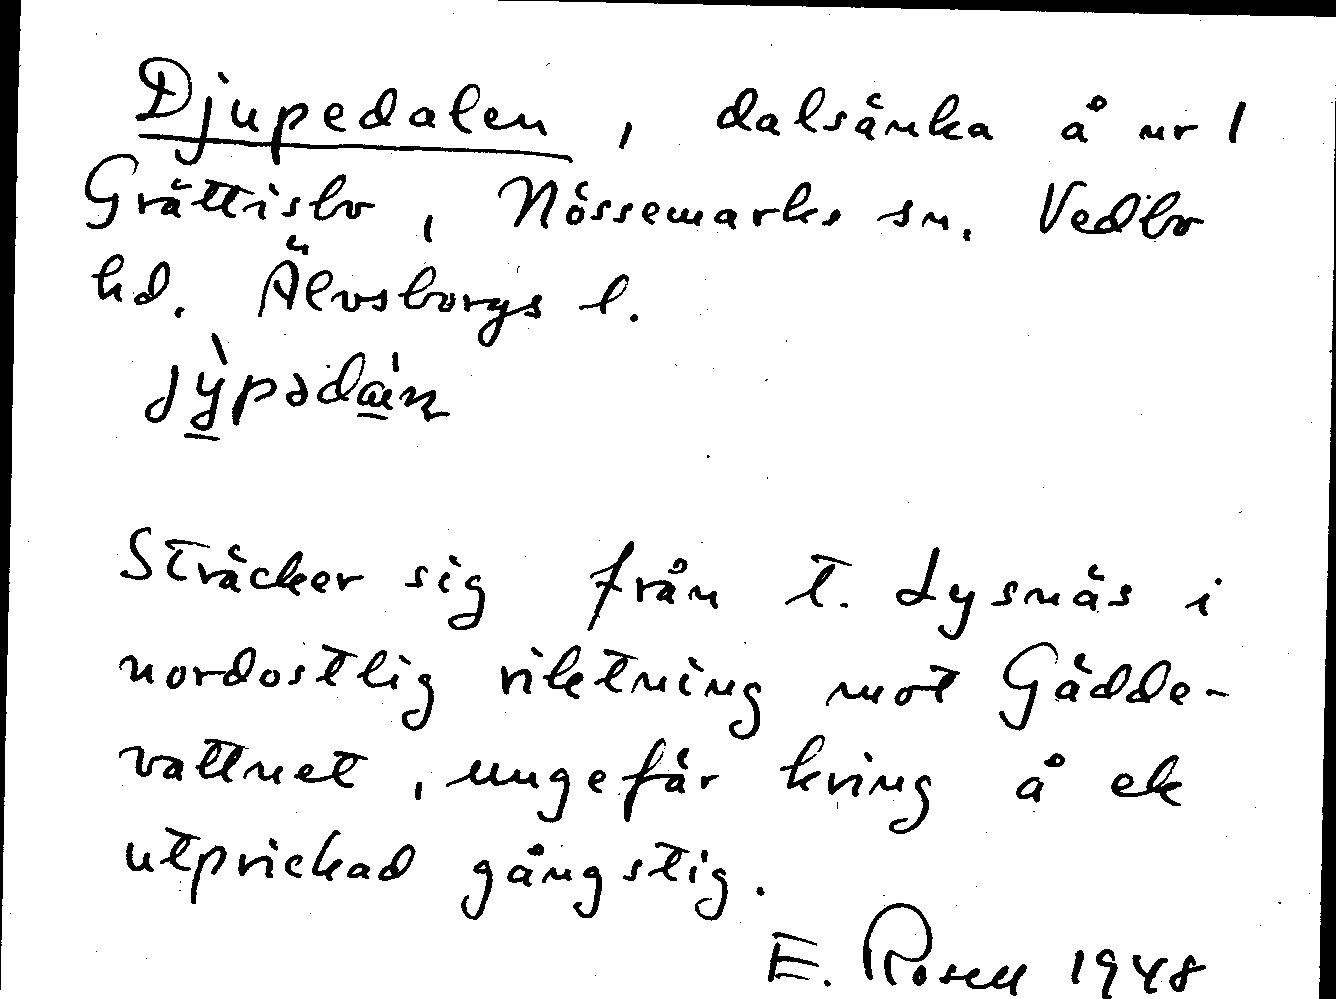 Djupedalen, dalsänka å nr 1
Grättisbo, Nössemarks sn. Vedbo
hd. Älvsborgs l.
Sträcker sig från t. Lysnäs i
nordostlig riktning mot Gädde-
vattnet, ungefär kring å ek
utprickad gångstig.
E. Rosell 1948